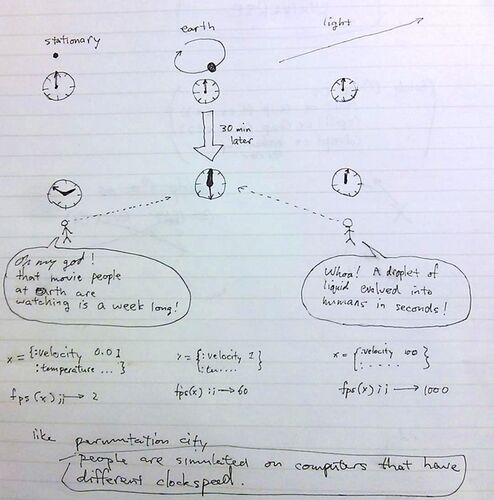 stationary
earth
light
30 min
later
Oh my god!
that movie people
at Earth are
watching is a week long!
Whoa! A droplet of
liquid evolved into
humans in seconds!
x = {:velocity 0.01
:temperature ... }
fps(x) ;; → 2
x = {:velocity 1
:tem.... }
fps(x) ;; → 60
x = {:velocity 100
: ..... }
fps(x) ;; → 1000
like permutation city
people are simulated on computers that have
different clockspeed.